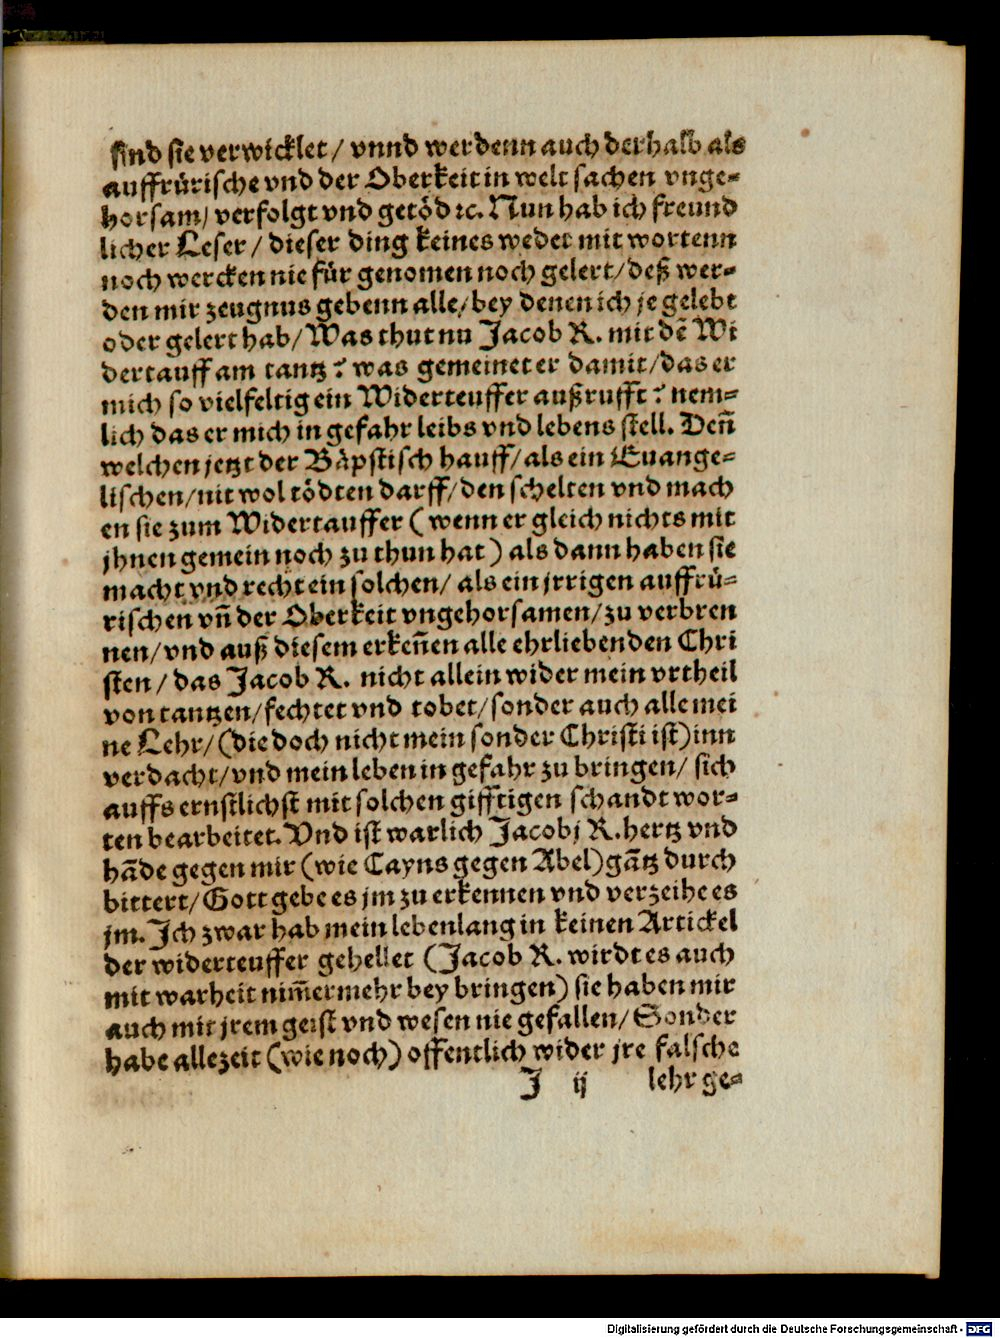 sind sie verwicklet / vnnd werdenn auch derhalb als
auffrürische vnd der Oberkeit in welt sachen vnge-
horsam / verfolgt vnd getöd ꝛc. Nun hab ich freund
licher Leser / dieser ding keines weder mit wortenn
noch wercken nie für genomen noch gelert / deß wer-
den mir zeugnus gebenn alle / bey denen ich je gelebt
oder gelert hab / Was thut nu Jacob R. mit dē Wi
dertauff am tantz ? was gemeinet er damit / das er
mich so vielfeltig ein Widerteuffer außrufft ? nem-
lich das er mich in gefahr leibs vnd lebens stell. Deñ
welchen jetzt der Bäpstisch hauff / als ein Euange-
lischen / nit wol tödten darff / den schelten vnd mach
en sie zum Widertauffer ( wenn er gleich nichts mit
jhnen gemein noch zu thun hat ) als dann haben sie
macht vnd recht ein solchen / als ein jrrigen auffrü-
rischen vñ der Oberkeit vngehorsamen / zu verbren
nen / vnd auß diesem erkeñen alle ehrliebenden Chri
sten / das Jacob R. nicht allein wider mein vrtheil
von tantzen / fechtet vnd tobet / sonder auch alle mei
ne Lehr / (die doch nicht mein sonder Christi ist) inn
verdacht / vnd mein leben in gefahr zu bringen / sich
auffs ernstlichst mit solchen gifftigen schandt wor-
ten bearbeitet. Vnd ist warlich Jacobj R. hertz vnd
hāde gegen mir (wie Cayns gegen Abel) gātz durch
bittert / Gott gebe es jm zu erkennen vnd verzeihe es
jm. Ich zwar hab mein lebenlang in keinen Artickel
der widerteuffer gehellet (Jacob R. wirdt es auch
mit warheit nim̄ermehr bey bringen) sie haben mir
auch mit jrem geist vnd wesen nie gefallen / Sonder
habe allezeit (wie noch) offentlich wider jre falsche
J ij lehr ge-
Digitalisierung gefördert durch die Deutsche Forschungsgemeinschaft - DFG